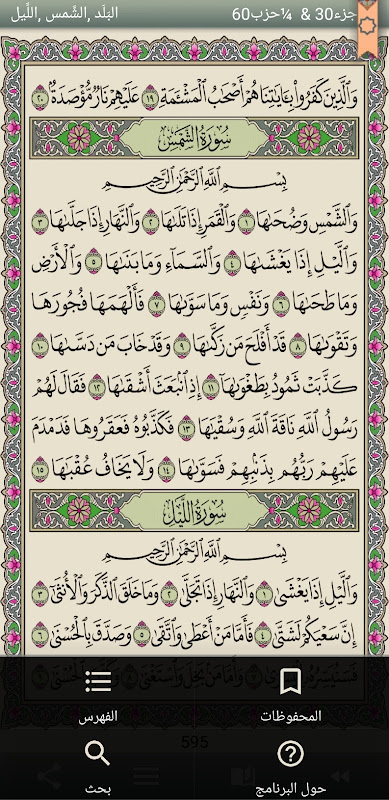 جزء30 & ¼حزب60
البَلَد ,الشّمس ,اللَّيل
وَٱلَّذِينَ كَفَرُوا۟ بِـَٔايَٰتِنَا هُمْ أَصْحَٰبُ ٱلْمَشْـَٔمَةِ ١٩ عَلَيْهِمْ نَارٌ مُّؤْصَدَةٌۢ ٢٠
سُورَةُ الشَّمْسِ
بِسْمِ ٱللَّهِ ٱلرَّحْمَٰنِ ٱلرَّحِيمِ
وَٱلشَّمْسِ وَضُحَىٰهَا ١ وَٱلْقَمَرِ إِذَا تَلَىٰهَا ٢ وَٱلنَّهَارِ إِذَا جَلَّىٰهَا ٣
وَٱلَّيْلِ إِذَا يَغْشَىٰهَا ٤ وَٱلسَّمَآءِ وَمَا بَنَىٰهَا ٥ وَٱلْأَرْضِ
وَمَا طَحَىٰهَا ٦ وَنَفْسٍ وَمَا سَوَّىٰهَا ٧ فَأَلْهَمَهَا فُجُورَهَا
وَتَقْوَىٰهَا ٨ قَدْ أَفْلَحَ مَن زَكَّىٰهَا ٩ وَقَدْ خَابَ مَن دَسَّىٰهَا ١٠
كَذَّبَتْ ثَمُودُ بِطَغْوَىٰهَآ ١١ إِذِ ٱنۢبَعَثَ أَشْقَىٰهَا ١٢ فَقَالَ لَهُمْ
رَسُولُ ٱللَّهِ نَاقَةَ ٱللَّهِ وَسُقْيَٰهَا ١٣ فَكَذَّبُوهُ فَعَقَرُوهَا فَدَمْدَمَ
عَلَيْهِمْ رَبُّهُم بِذَنۢبِهِمْ فَسَوَّىٰهَا ١٤ وَلَا يَخَافُ عُقْبَٰهَا ١٥
سُورَةُ اللَّيْلِ
بِسْمِ ٱللَّهِ ٱلرَّحْمَٰنِ ٱلرَّحِيمِ
وَٱلَّيْلِ إِذَا يَغْشَىٰ ١ وَٱلنَّهَارِ إِذَا تَجَلَّىٰ ٢ وَمَا خَلَقَ ٱلذَّكَرَ وَٱلْأُنثَىٰٓ ٣
إِنَّ سَعْيَكُمْ لَشَتَّىٰ ٤ فَأَمَّا مَنْ أَعْطَىٰ وَٱتَّقَىٰ ٥ وَصَدَّقَ بِٱلْحُسْنَىٰ ٦
فَسَنُيَسِّرُهُۥ لِلْيُسْرَىٰ ٧ وَأَمَّا مَنۢ بَخِلَ وَٱسْتَغْنَىٰ ٨ وَكَذَّبَ بِٱلْحُسْنَىٰ ٩
المحفوظات
الفهرس
595
حول البرنامج
بحث